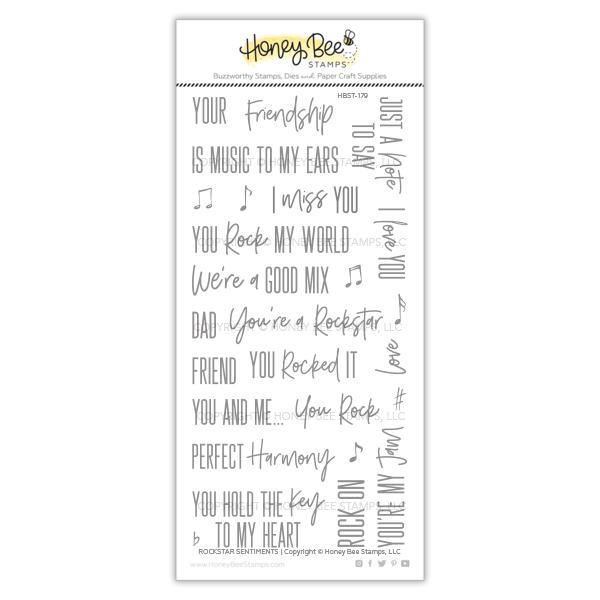 Honey Bee
STAMPS
Buzzworthy Stamps, Dies and Paper Craft Supplies
HBST-179
YOUR Friendship
IS MUSIC TO MY EARS
I miss YOU
YOU Rock MY WORLD
We're a GOOD MIX
DAD You're a Rockstar
FRIEND YOU Rocked IT
YOU AND ME... You Rock
PERFECT Harmony
YOU HOLD THE Key
TO MY HEART
JUST A Note
TO SAY
I love YOU
Love
#
YOU'RE MY Jam
ROCK ON
COPYRIGHT © HONEY BEE STAMPS, LLC
COPYRIGHT © HONEY BEE STAMPS, LLC
COPYRIGHT © HONEY BEE STAMPS, LLC
COPYRIGHT © HONEY BEE STAMPS, LLC
COPYRIGHT © HONEY BEE STAMPS, LLC
ROCKSTAR SENTIMENTS | Copyright © Honey Bee Stamps, LLC
www.HoneyBeeStamps.com